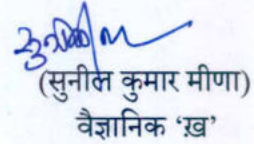 (सुनील कुमार मीणा)
वैज्ञानिक ‘ख़’